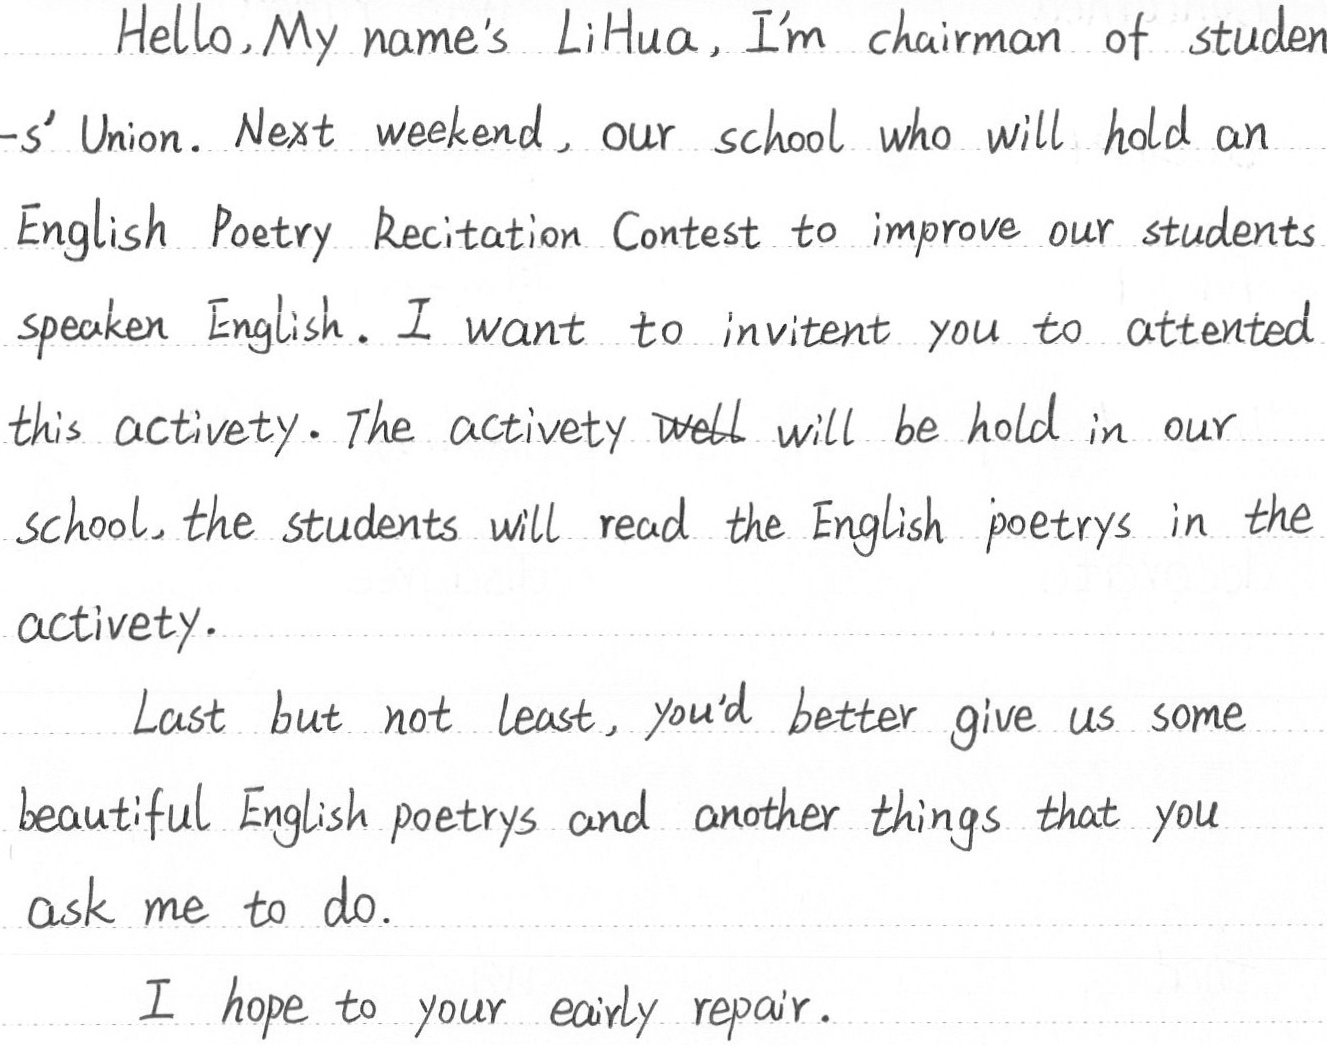 Hello, My name's LiHua, I'm chairman of studen
-s' Union. Next weekend, our school who will hold an
English Poetry Recitation Contest to improve our students
speaken English. I want to invitent you to attented
this activety. The activety well will be hold in our
school, the students will read the English poetrys in the
activety.
Last but not least, you'd better give us some
beautiful English poetrys and another things that you
ask me to do.
I hope to your eairly repair.